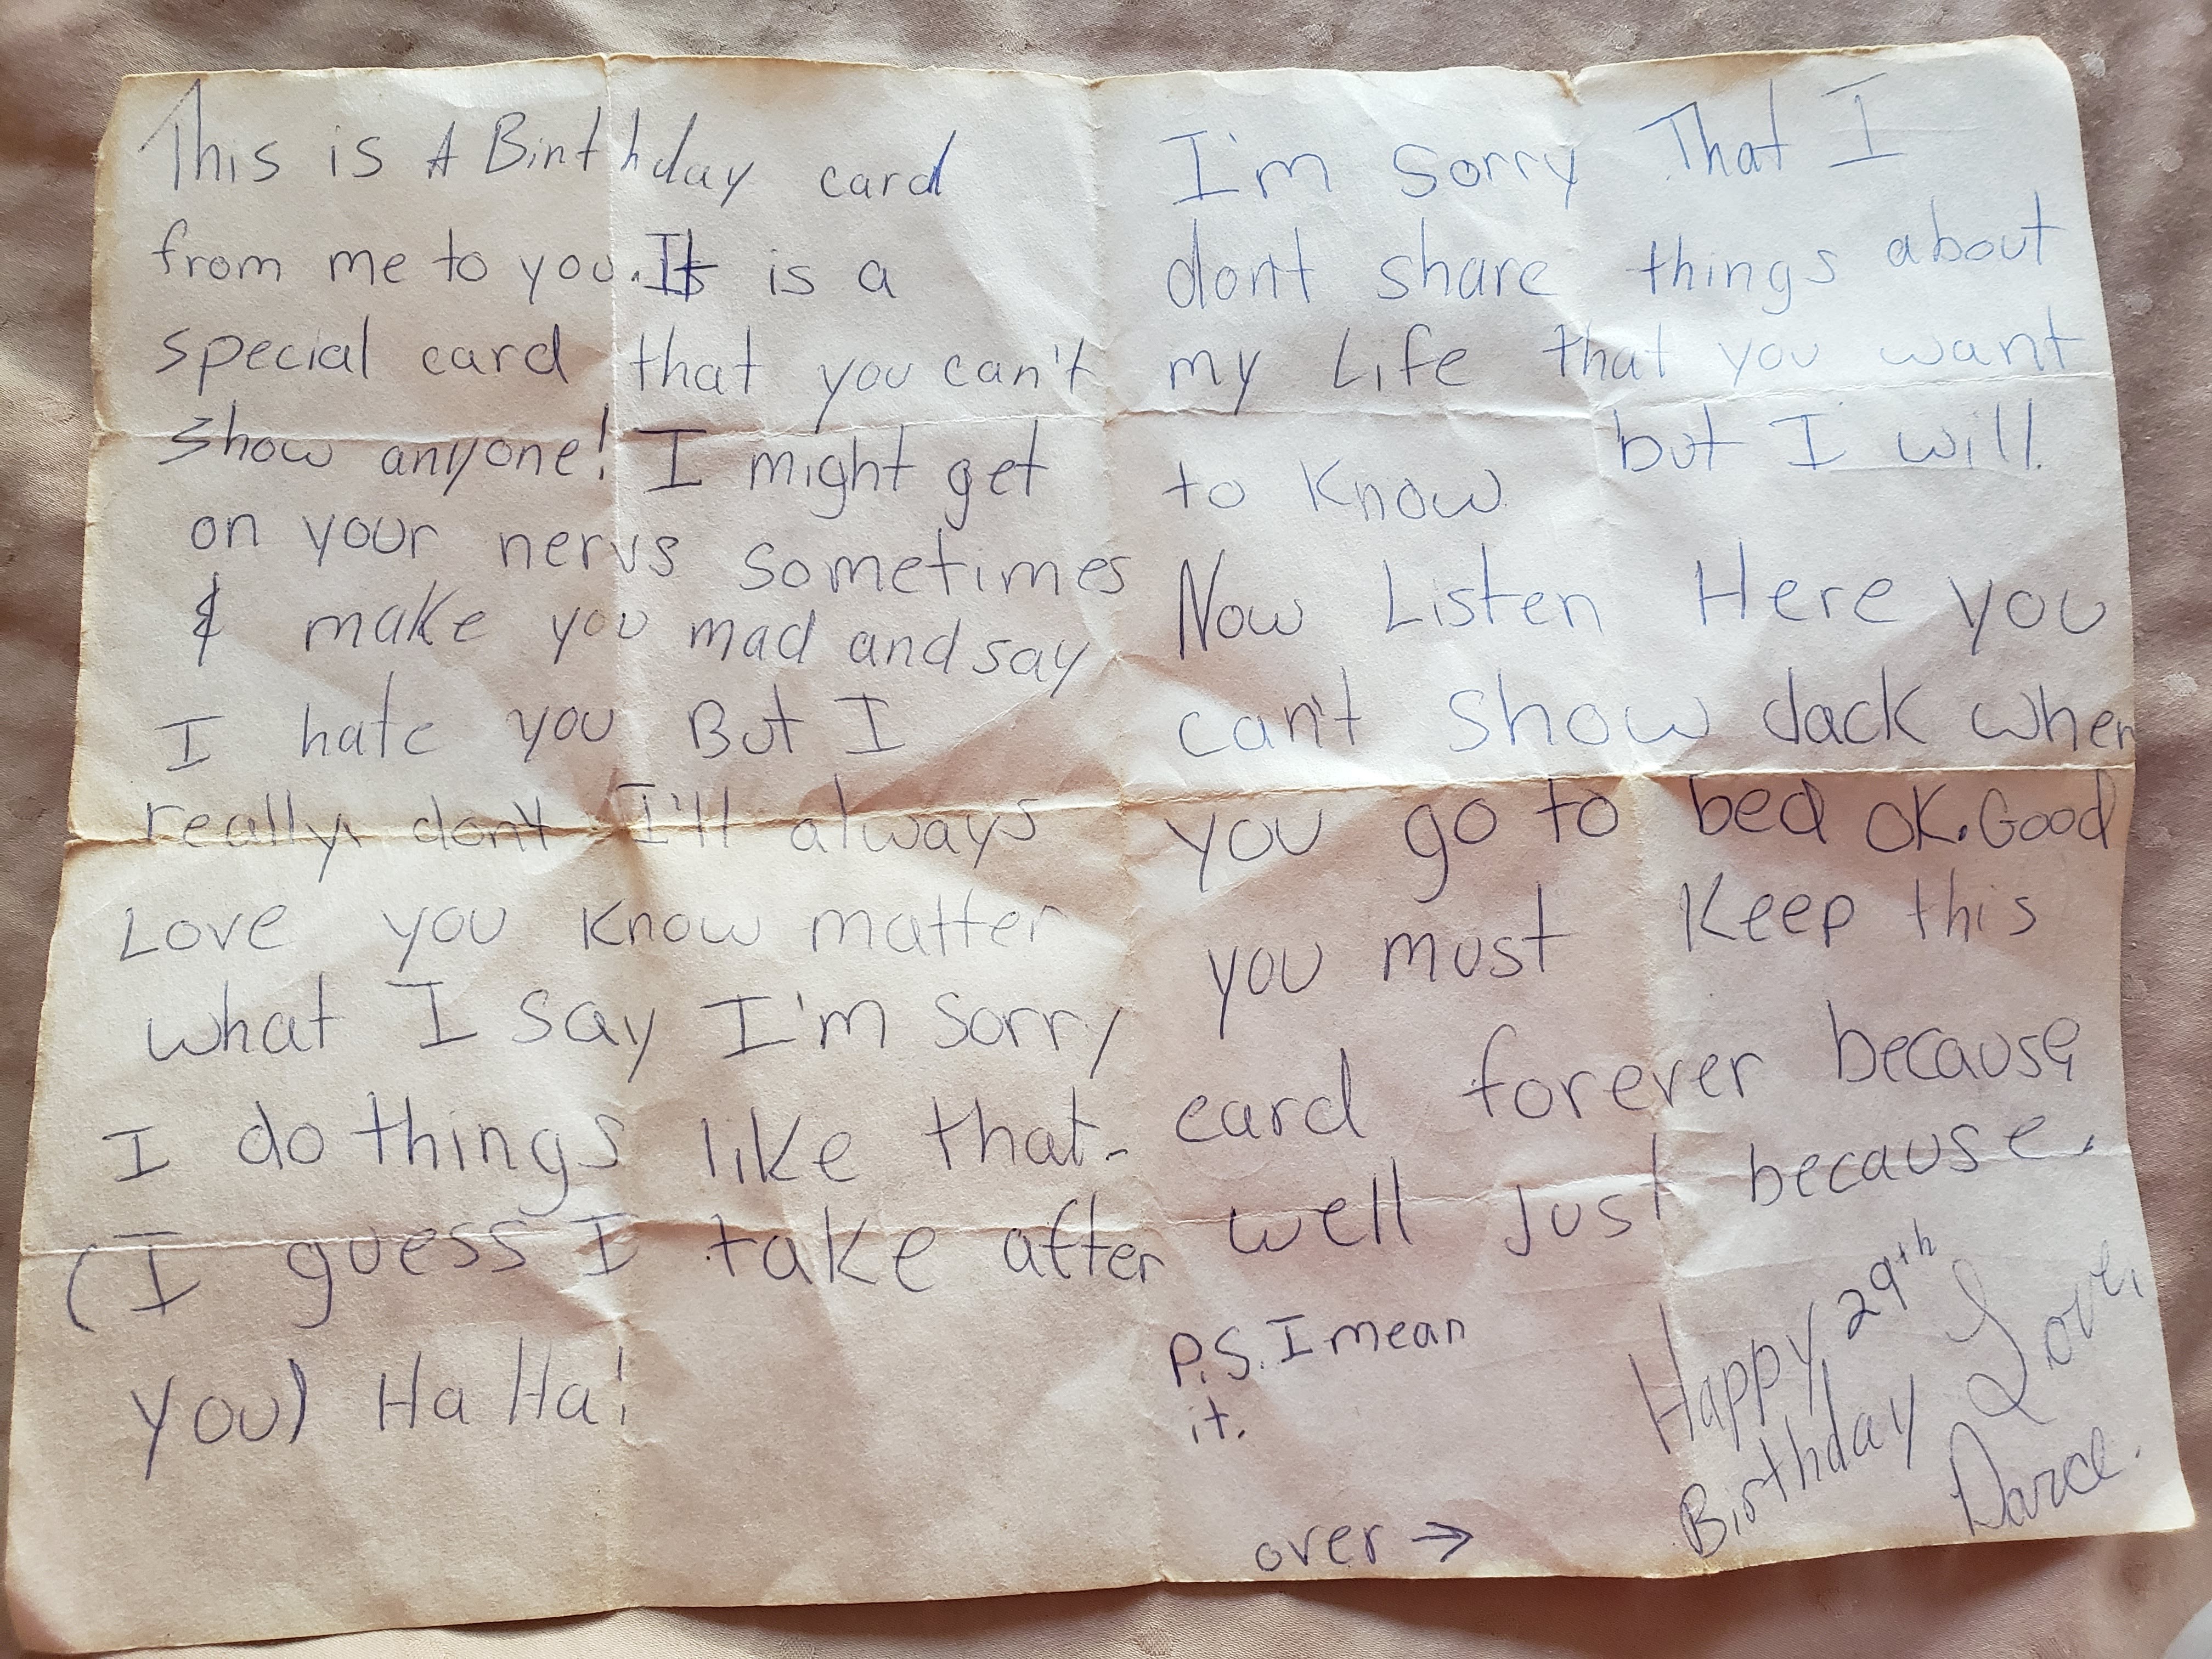 This is A Birthday card
from me to you. It is a
special card that you can't
show anyone! I might get
on your nervs sometimes
& make you mad and say
I hate you But I
really don't I'll always
Love you know matter
what I say I'm sorry
I do things like that.
(I guess I take after
you) Ha Ha!
I'm sorry That I
don't share things about
my Life that you want
to know but I will.
Now Listen Here you
can't show dack when
you go to bed OK. Good
you must Keep this
card forever because,
well just because.
P.S. I mean
it.
Happy 29th
Birthday
Love,
Darce.
over →